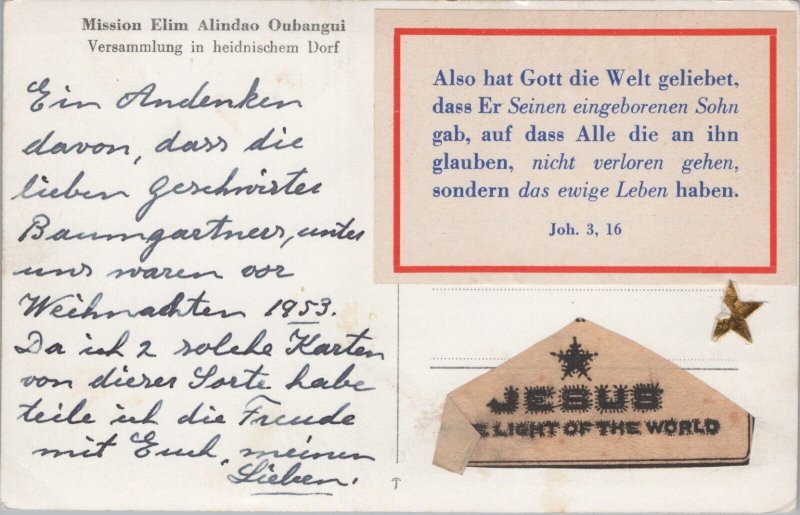 Mission Elim Alindao Oubangui
Versammlung in heidnischem Dorf
Ein Andenken
davon, dass die
lieben Geschwister
Baumgartners, unter
uns waren vor
Weihnachten 1953.
Da ich 2 solche Karten
von dieser Sorte habe
teile ich die Freude
mit Euch, meinen
Lieben.
Also hat Gott die Welt geliebet,
dass Er Seinen eingeborenen Sohn
gab, auf dass Alle die an ihn
glauben, nicht verloren gehen,
sondern das ewige Leben haben.
Joh. 3, 16
JESUS
E LIGHT OF THE WORLD